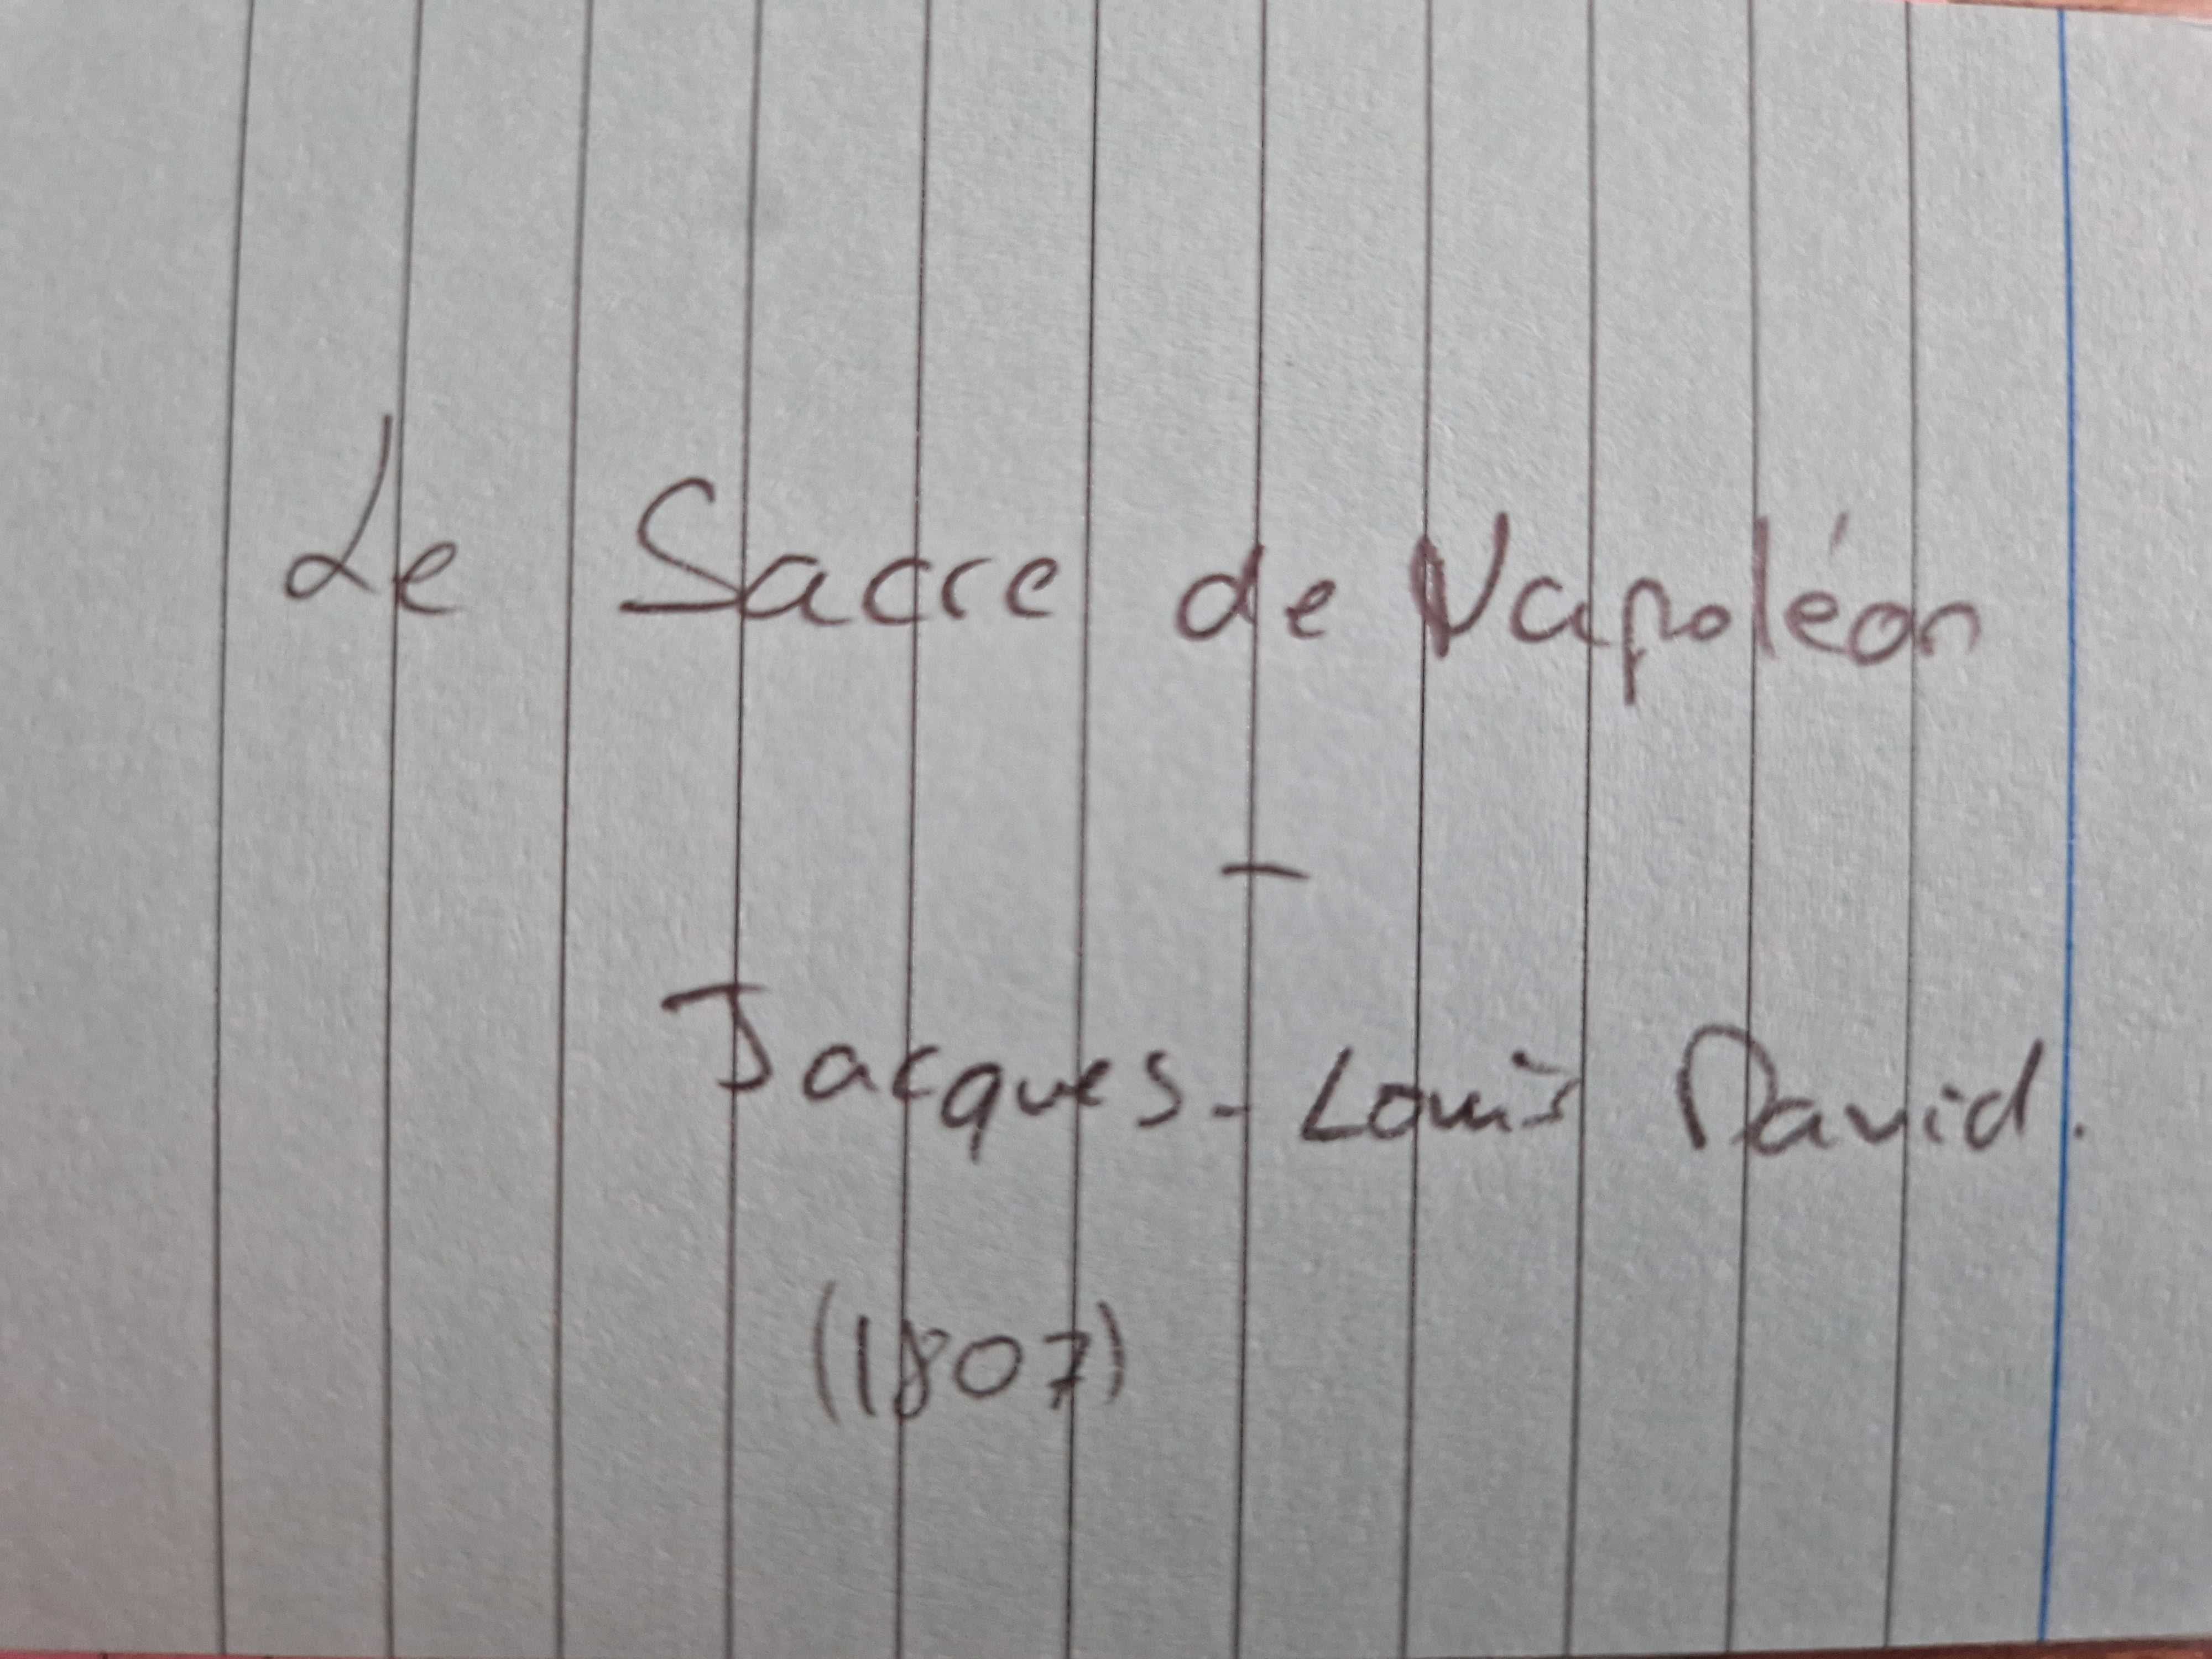 Le Sacre de Napoléon
-
Jacques-Louis David.
(1807)